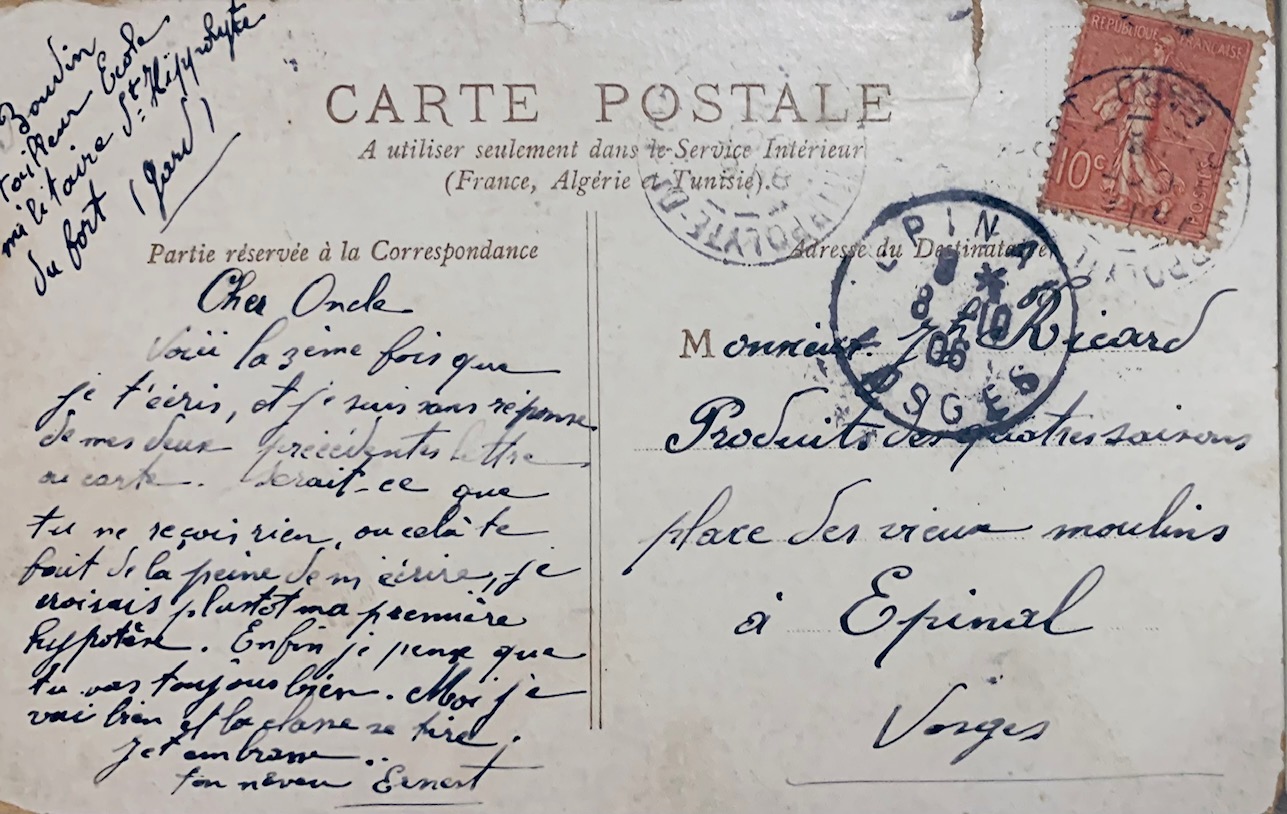 Boudin
tailleur Ecole
militaire St Hippolyte
du fort (Gard)
CARTE POSTALE
A utiliser seulement dans le Service Intérieur
(France, Algérie et Tunisie).
REPUBLIQUE FRANÇAISE
10c
POSTES
Partie réservée à la Correspondance
Cher Oncle
Voici la 3ème fois que
je t'écris, et je suis sans réponse
de mes deux précédentes lettre
ou carte. Serait-ce que
tu ne reçois rien, ou celà te
fait de la peine de m'écrire, je
croirais plustot ma première
hypotèse. Enfin je pense que
tu vas toujours bien. Moi je
vai bien et la classe se tire.
Je t'embrasse..
ton neveu Ernest
Adresse du Destinataire
EPINAL
8 *
8 10
06
VOSGES
HIPPOLYTE-DU
Monsieur Ricard
Produits des quatres saisons
place des vieux moulins
à Epinal
Vosges